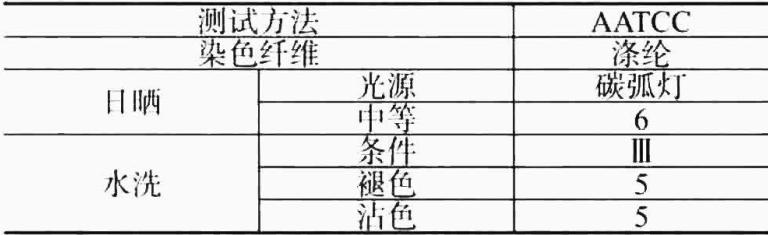 测试方法 AATCC
染色纤维 涤纶
日晒 光源 碳弧灯
中等 6
水洗 条件 Ⅲ
褪色 5
沾色 5